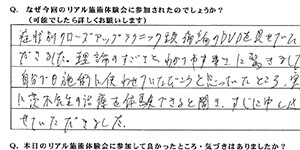 Q. なぜ今回のリアル施術体験会に参加されたのでしょうか?
(可能でしたら詳しくお願いします)
症状別クローズアップテクニック 頭痛編のDVDを見せていた
だきました。理論のすごさ、わかりやすさに驚きました
自分で日施術に使わせていただこうと思っていたところ、実
に 先生の治療を体験できると聞き、すぐに申し込ま
せていただきました。
Q. 本日のリアル施術体験会に参加して良かったところ・気づきはありましたか?